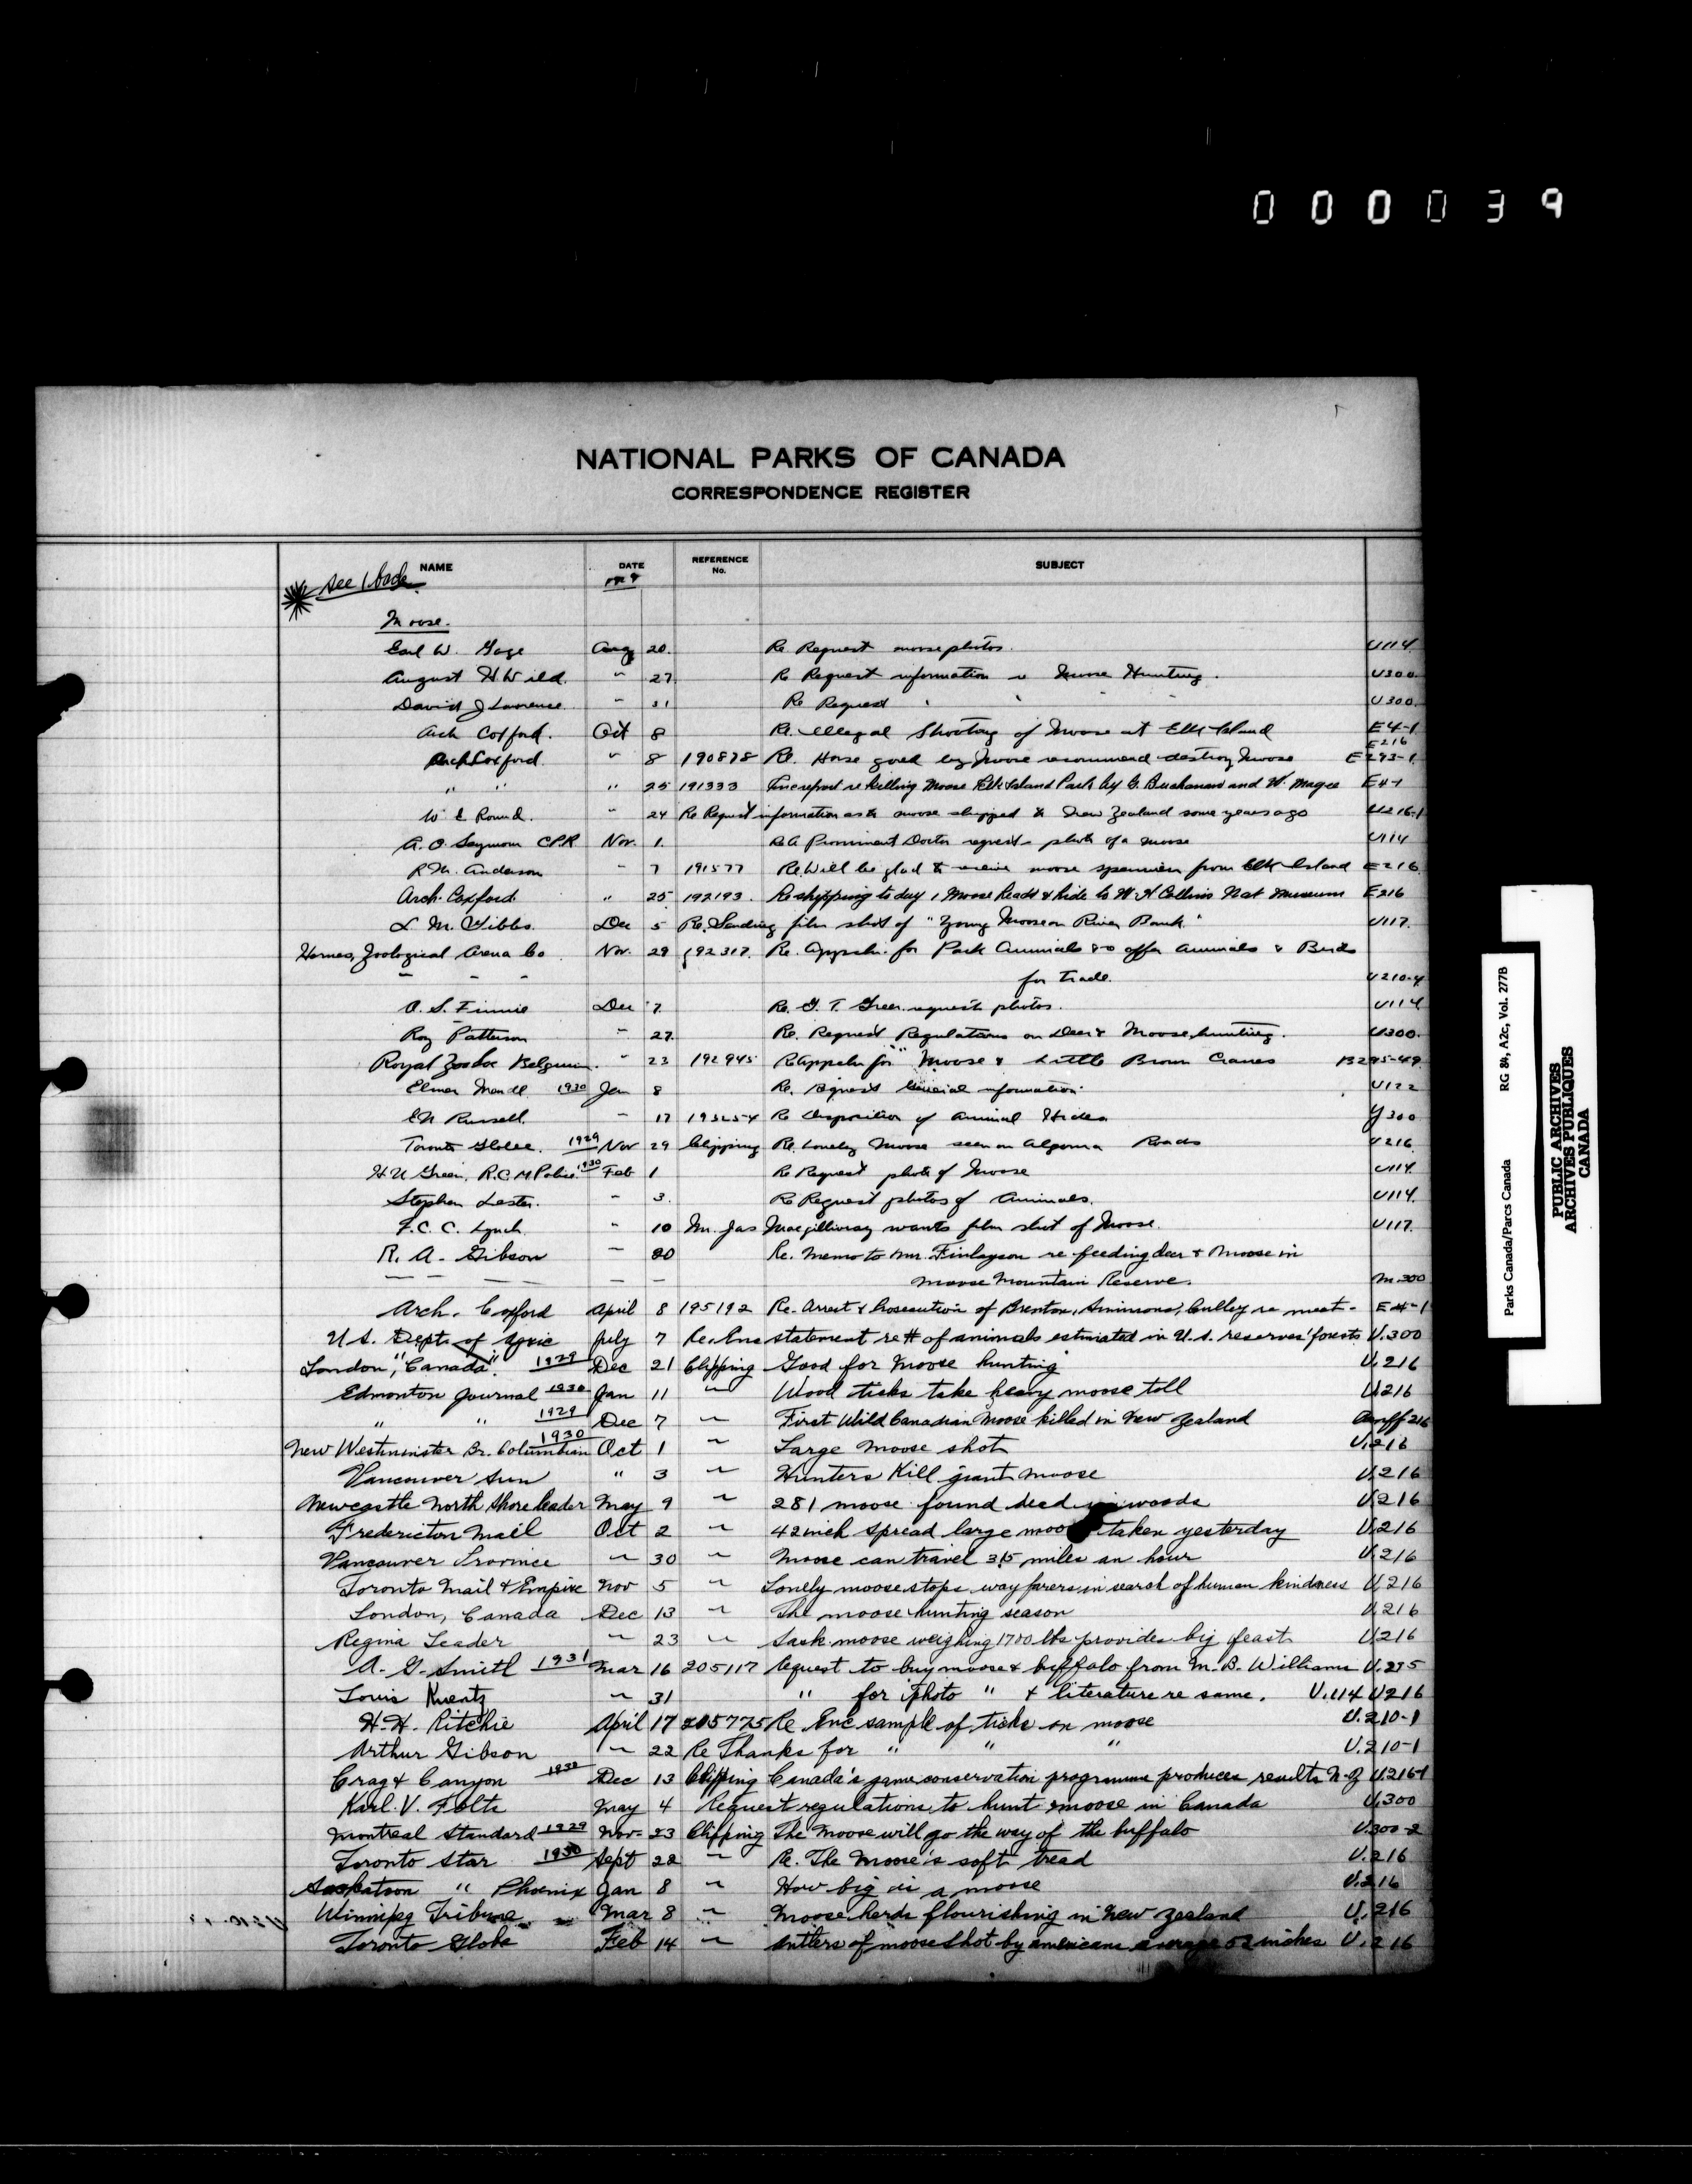 000039
NATIONAL PARKS OF CANADA
CORRESPONDENCE REGISTER
NAME DATE REFERENCE No. SUBJECT
See 1 back
Moose.
Earl W. Gage Aug 20. Re Request moose photos. U114
August H. Wild. " 27. Re Request information re Moose Hunting. U300
David J Lawrence " 31 Re Request " " " U300.
Arch Coxford. Oct 8 Re. Illegal Shooting of Moose at Elk Island E4-1
E216
Arch Coxford " 8 190878 Re. Horse gored by Moose recommend destroy Moose E293-1
" " " 25 191333 Enc report re killing Moose Elk Island Park by G. Buchanan and W. Magee E4-1
W E Round. " 24 Re Request information as to moose shipped to New Zealand some years ago U216-1
A. O. Seymour CPR Nov. 1. Re A Prominent Doctor requests photo of a moose U114
R. M. Anderson " 7 191577 Re. Will be glad to receive moose specimen from Elk Island E216
Arch. Coxford. " 25 192193. Re shipping to day 1 Moose head & hide to W. H Collins Nat Museum E216
L M. Gibbs. Dec 5 Re. Sending film shot of "Young Moose on River Bank" U117.
Hornes, Zoological Arena Co Nov. 29 192317. Re. Appreln. for Park Animals also offer Animals & Birds
- - - for trade. U210-4
O. S. Finnie Dec 7. Re. G. T. Green. requests photos. U114
Roy Patterson " 27. Re. Request Regulations on Deer & Moose hunting. U300.
Royal Zoo Soc Belgium. " 23 192945 Re Appeln for " Moose & Little Brown Cranes B295-49
Elmer Mandl 1930 Jan 8 Re. Request General information. U122
E N Russell. " 17 Re Disposition of Animal Hides Y300
Toronto Globe. 1929 Nov 29 Clipping Re. Lonely Moose seen on Algoma Roads U216
H. U Green, R.C.M Police. 1930 Feb 1 Re Request photo of Moose U114.
Stephen Lester. " 3. Re Request photos of Animals. U114.
F. C. C. Lynch " 10 Mr. Jas Macgillivray wants film shot of Moose. U117.
R. A. Gibson " 20 Re. Memo to Mr. Finlayson re feeding deer & Moose in
- - - - Moose Mountain Reserve. M.300
Arch. Coxford April 8 195192 Re. Arrest & Prosecution of Brenton, Simmons, Culley re meat. E4-1
U.S. Dept. of Agric July 7 Re. Enc statement re # of animals estimated in U.S. reserves' forests U.300
London, "Canada". 1929 Dec 21 Clipping Good for Moose hunting U.216
Edmonton Journal 1930 Jan 11 " Wood ticks take heavy moose toll U.216
" " 1929 Dec 7 " First Wild Canadian Moose killed in New Zealand Banff 216
New Westminster Br. Columbian 1930 Oct 1 " Large moose shot U.216
Vancouver Sun " 3 " Hunters Kill giant moose U.216
Newcastle North Shore Leader May 9 " 281 moose found dead in woods U.216
Fredericton Mail Oct 2 " 42 inch spread large moose taken yesterday U.216
Vancouver Province " 30 " Moose can travel 35 miles an hour U.216
Toronto Mail & Empire Nov 5 " Lonely moose stops wayfarers in search of human kindness U.216
London, Canada Dec 13 " The moose hunting season U.216
Regina Leader " 23 " Sask. moose weighing 1700 lbs provides big feast U.216
A. G. Smith 1931 Mar 16 205117 Request to buy moose & buffalo from M. B. Williams U.295
Louis Kuentz " 31 " for photo " & literature re same. U.114 U216
H. H. Ritchie April 17 205775 Re Enc sample of ticks on moose U.210-1
Arthur Gibson " 22 Re Thanks for " " " U.210-1
Crag & Canyon 1930 Dec 13 Clipping Canada's game conservation programme produces results N.Z U.216-1
Karl. V. Folts May 4 Request regulations to hunt moose in Canada U.300
Montreal Standard 1929 Nov. 23 Clipping The Moose will go the way of the buffalo U.300-2
Toronto Star 1930 Sept 22 " Re. The Moose's soft tread U.216
Saskatoon " Phoenix Jan 8 " How big is a moose U.216
Winnipeg Tribune Mar 8 " Moose herds flourishing in New Zealand U.216
Toronto Globe Feb 14 " Antlers of moose shot by americans average 52 inches U.216
Parks Canada/Parcs Canada RG 84, A2c, Vol. 277B
PUBLIC ARCHIVES
ARCHIVES PUBLIQUES
CANADA